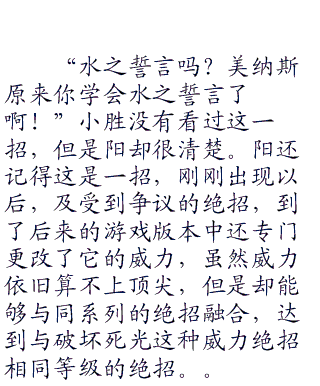 “水之誓言吗？美纳斯
原来你学会水之誓言了
啊！”小胜没有看过这一
招，但是阳却很清楚。阳还
记得这是一招，刚刚出现以
后，及受到争议的绝招，到
了后来的游戏版本中还专门
更改了它的威力，虽然威力
依旧算不上顶尖，但是却能
够与同系列的绝招融合，达
到与破坏死光这种威力绝招
相同等级的绝招。。